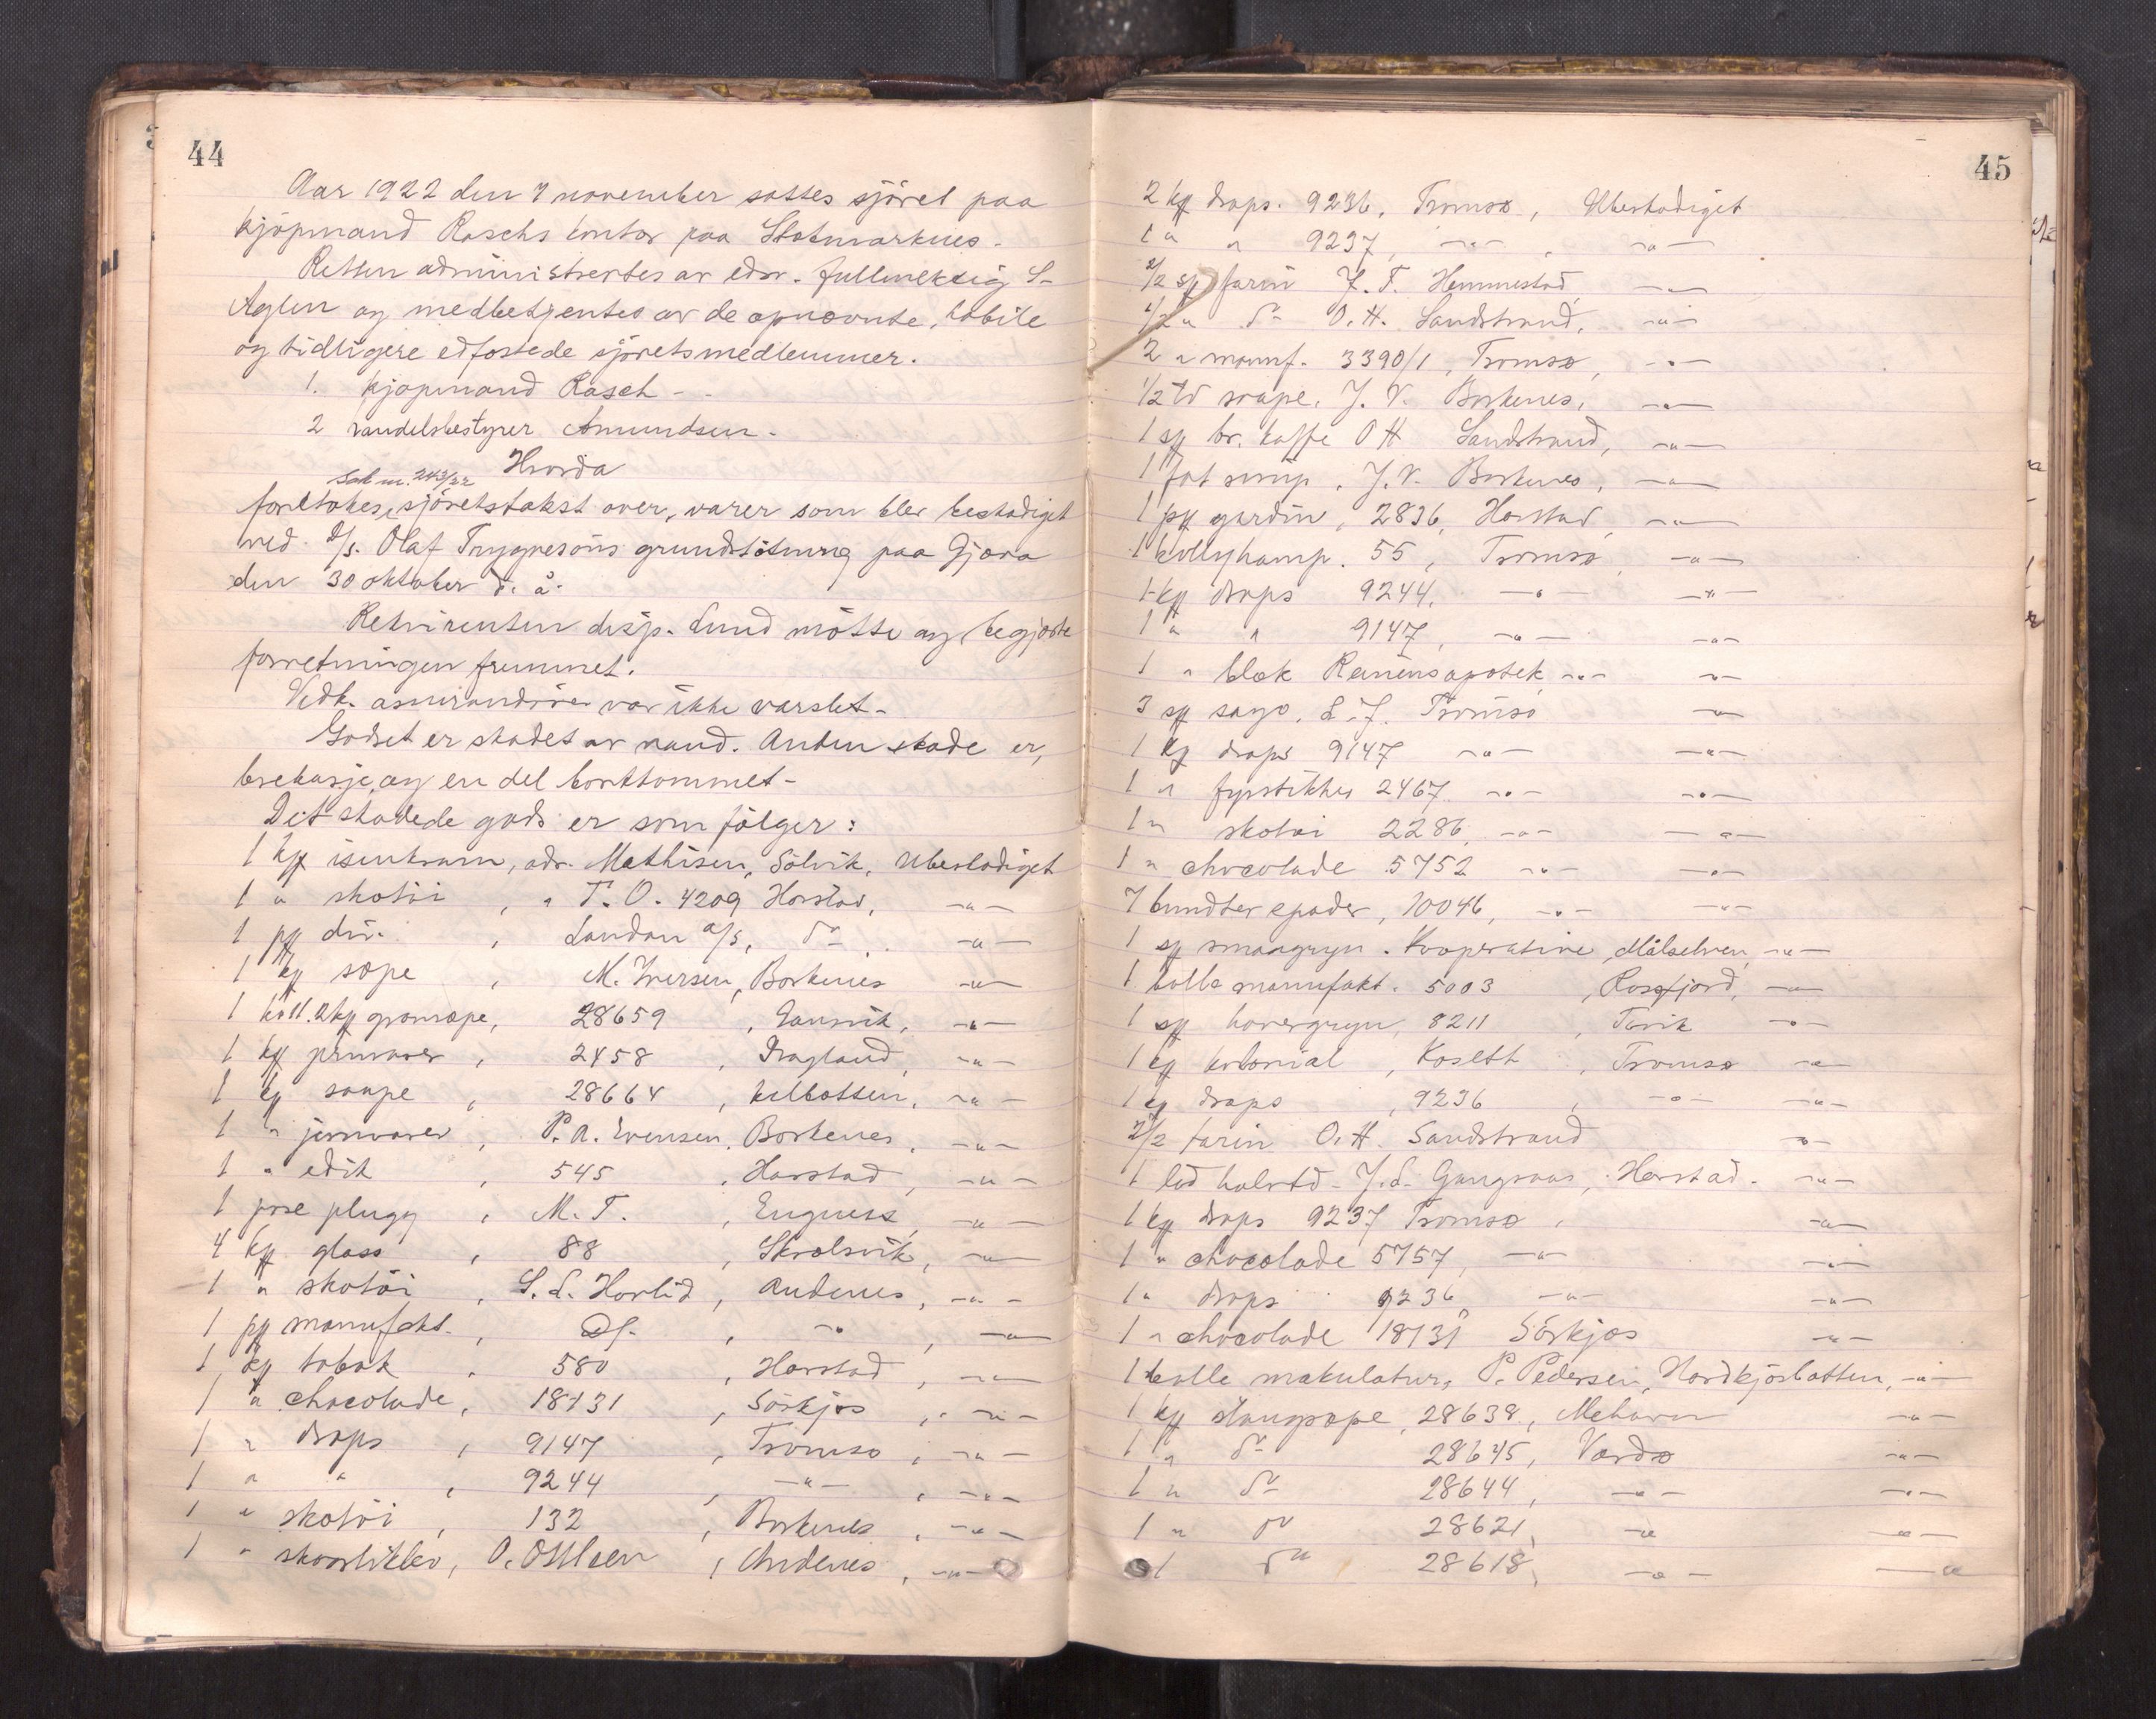 44
Aar 1922 den 7 november sattes sjöret paa
kjöpmand Raschs kontor paa Stokmarknes.
Retten administrertes av edsv. fullmektig S.
Aglen og medbetjentes av de opnævnte, habile
og tidligere edfæstede sjöretsmedlemmer.
1. kjöpmand Rasch -
2 handelsbestyrer Amundsen.
Hvorda
Sak nr. 243/22
foretokes, sjöretstakst over, varer som blev beskadiget
ved D/s. Olaf Trygvesöns grundstötning paa Gjæva
den 30 oktober d. å.
Rekvirenten disp. Lund mötte og begjærte
forretningen fremmet.
Vedk. assurandörer var ikke varslet.
Godset er skadet av vand. Anden skade er,
brekasje, og en del bortkommet -
Det skadede gods er som fölger:
1 kg isenkram, adr. Mathisen, Sölvik, Ubeskadiget
1 " skotöi , " T. O. 4209 Harstad, -"-
1 pg div. , Landau a/s, do -"-
1 kg sæpe , M. Iversen, Borkenes -"-
1 koll. 2 kg grönsæpe, 28659 , Gausvik, -"-
1 kg jernvarer , 2458 , Dragland, -"-
1 kg saape , 28664 , kilbotten, -"-
1 " jernvarer , P. A. Evensen, Borkenes, -"-
1 " edik , 545 , Harstad, -"-
1 pose plugg , M. T. , Engenes, -"-
4 kg glass , 88 , Skrolsvik, -"-
1 " skotöi , S. L. Horlid, Andenes, -"-
1 pg manufakt. , , -"- , -"-
1 kg tobak , 580 , Harstad, -"-
1 " chocolade, 18731 , Sörkjos, -"-
1 " drops , 9147 , Tromsø, -"-
1 " " , 9244 , -"- , -"-
1 " skotöi , 132 , Borkenes, -"-
1 " , , Andenes, -"-
45
2 kg drops. 9236, Tromsø, Ubeskadiget
1 " " 9237, -"- , -"-
2/2 sg farin J. T. Hemmestad, -"-
2/2 " do O. H. Sandstrand, -"-
2 " manuf. 3390/1, Tromsø, -"-
1/2 td saape, J. V. Borkenes, -"-
1 sg br. kaffe O H Sandstrand, -"-
1 fat sirup, J. V. Borkenes, -"-
1 pg gardin, 2836, Harstad, -"-
1 kolly hamp. 55, Tromsø, -"-
1 kg drops 9244, -"- -"-
1 " " 9147, -"- -"-
1 " blæk apotek, -"- -"-
3 sg sago, L. J. Tromsø -"-
1 kg drops 9147 -"- -"-
1 " fyrstikker 2467 -"- -"-
1 " skotöi 2286, -"- -"-
1 " chocolade 5752 -"- -"-
7 bundter spader, 10046, -"- -"-
1 sg smaagryn. Kooperative, Målselven, -"-
1 kolle manufakt. 5003 , Rossfjord, -"-
1 sg havregryn, 8211 , -"-
1 kg kolonial , Koseth , Tromsø -"-
1 kg drops , 9236 , -"- -"-
2/2 farin O. H. Sandstrand -"-
1 td halvtd - J. L. , Harstad. -"-
1 kg drops 9237 Tromsø , -"-
1 " chocolade 5757, -"- -"-
1 " drops 9236 -"- -"-
1 " chocolade 18731 Sörkjos -"-
1 kolle makulatur, P. Pedersen, Nordkjosbotten, -"-
1 kg stangsæpe, 28638, Mehavn -"-
1 " do 28645, Vardø -"-
1 " do 28644, -"- -"-
1 " do 28621, -"- -"-
1 do 28618, -"- -"-